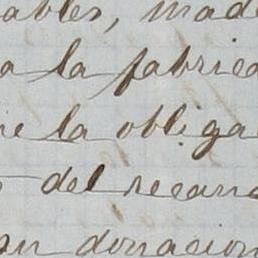 ables, made
a la fabrica
ne la obliga
s del recau
an donacion